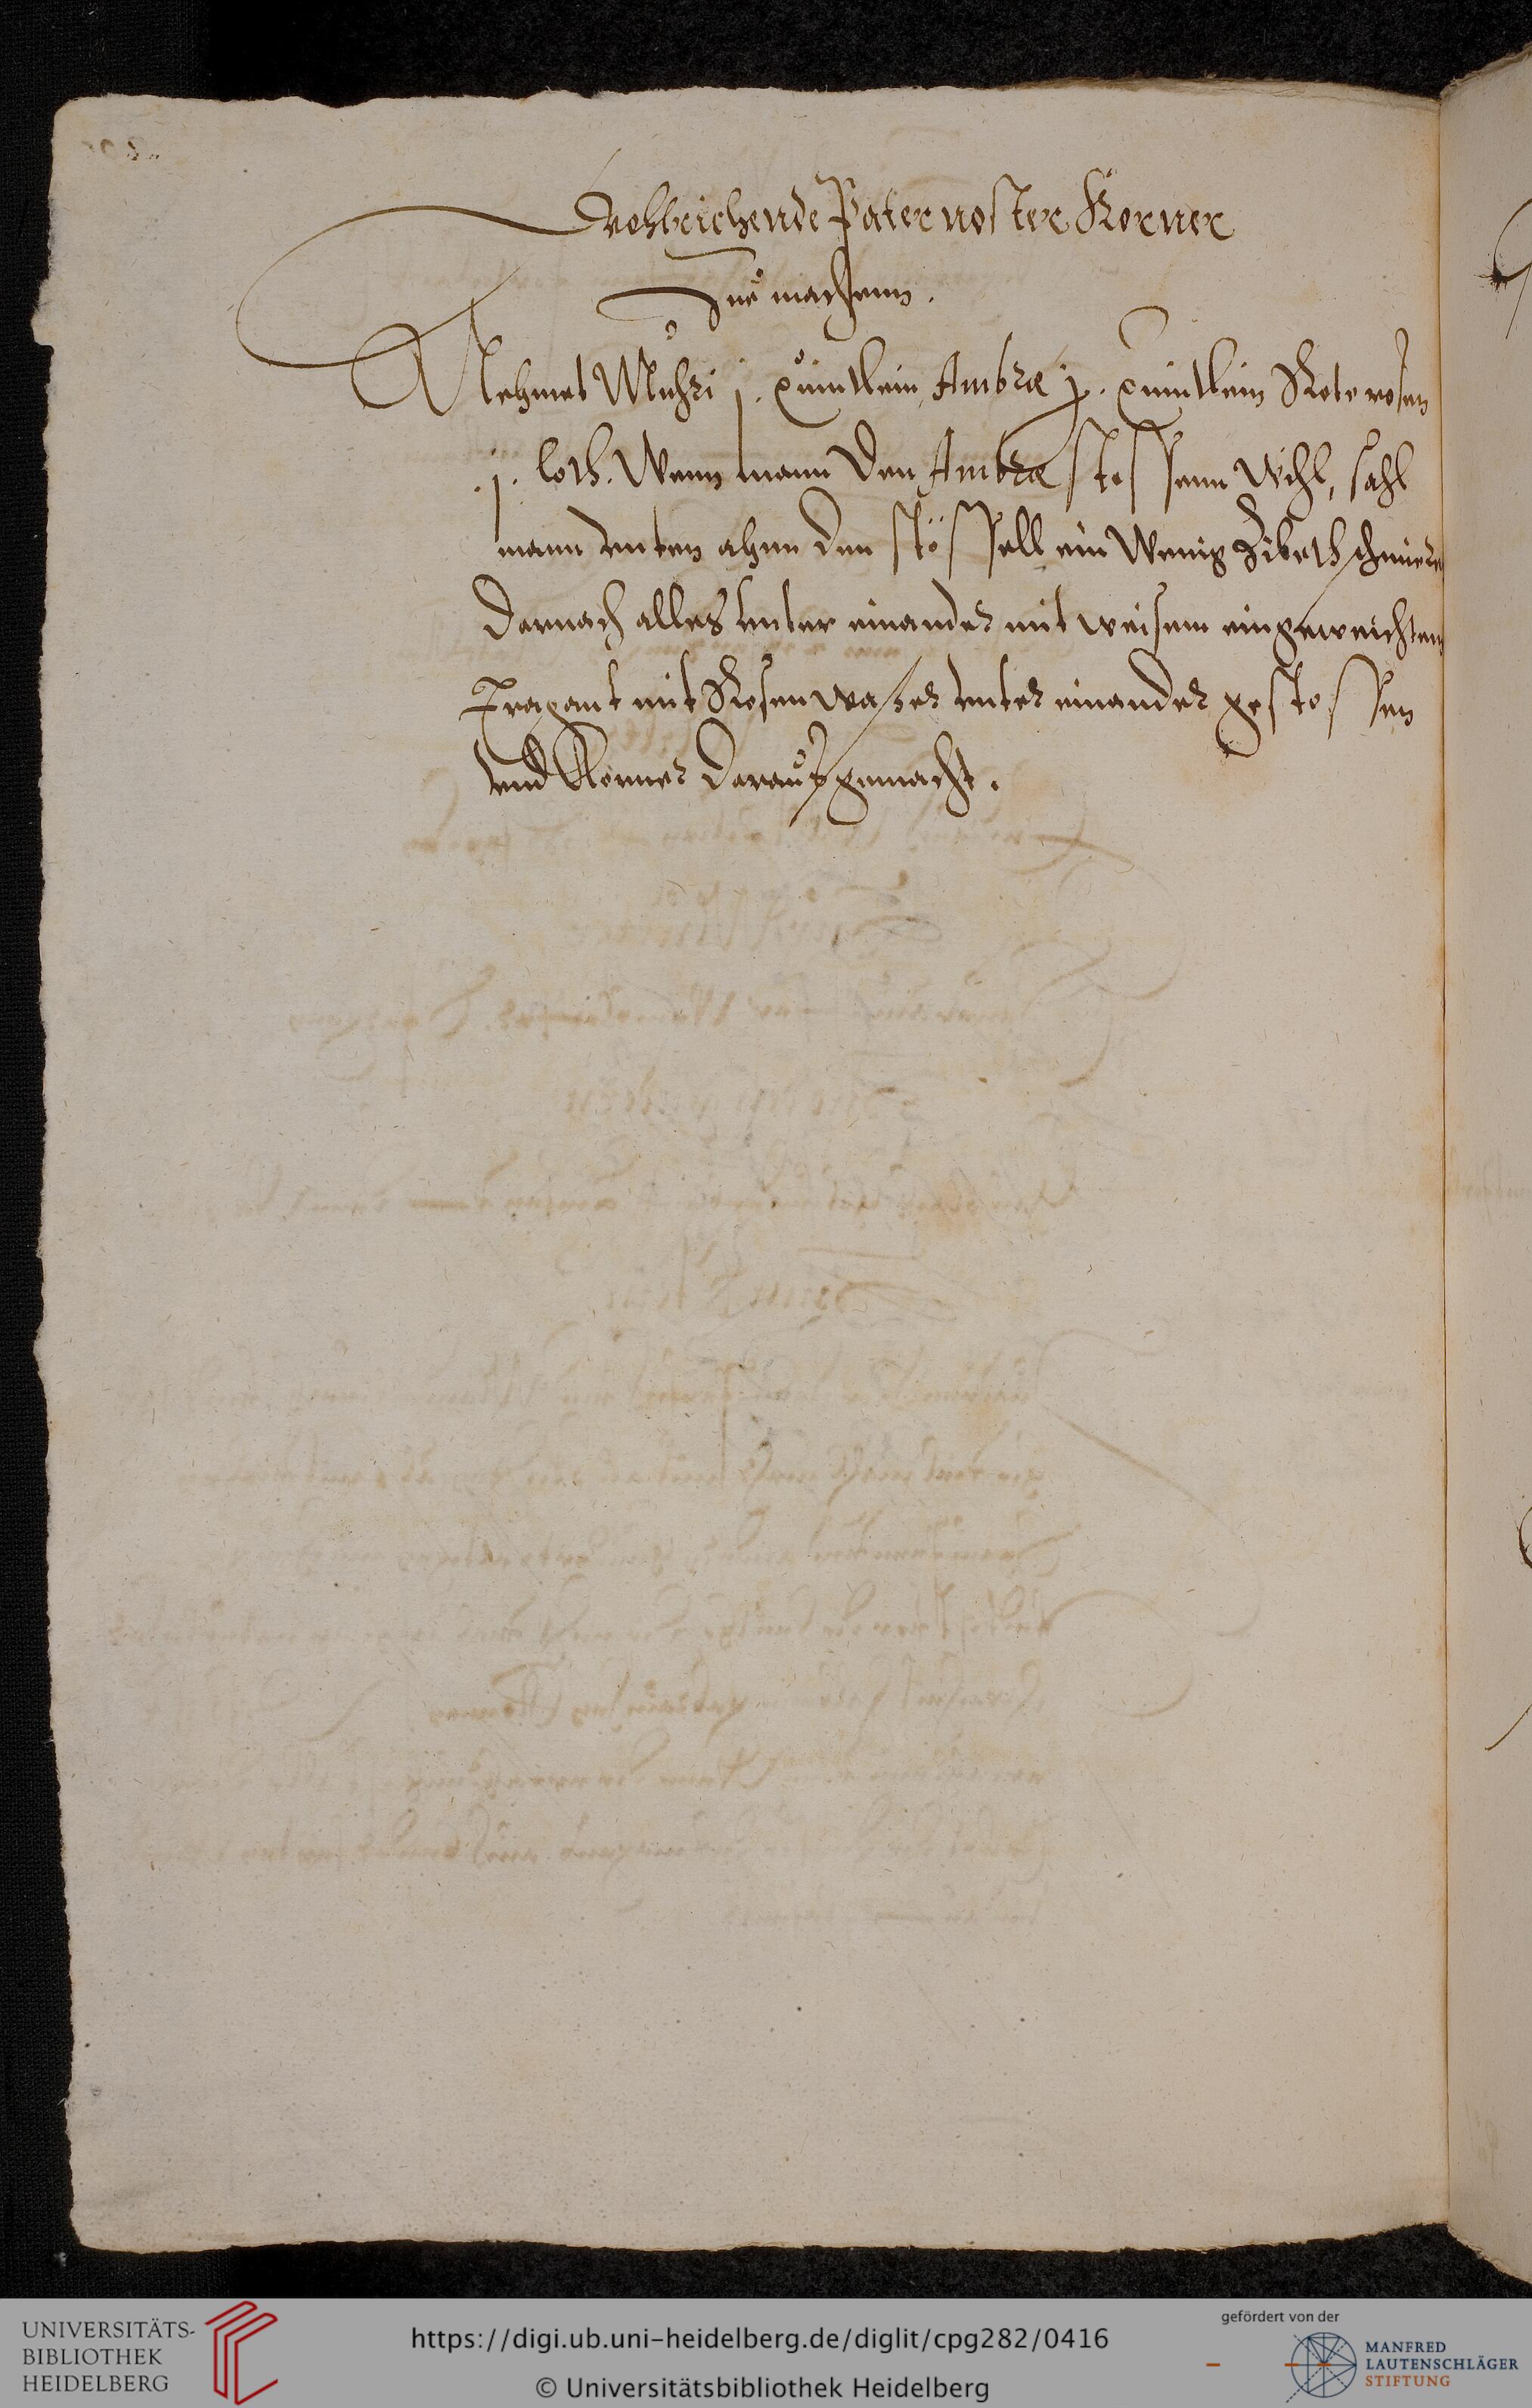 Wohlrichende Pater noster Korner
Zuͦ machenn.
Nehmet Muhsi j. Quintlein Ambrae j. quintlein Rote rosen
.j. loth. Wenn mann Den Ambrae stossenn Wihl, sahl
mann vnten ahnn den stössell ein Wenig Zibeth schmiere
Darnach alles vnter einander mit weisem eingeweichten
Tragant mit Rosenwaßer vnter einander gestossen
vnd Korner Darauß gemacht.
UNIVERSITÄTS-
BIBLIOTHEK
HEIDELBERG
https://digi.ub.uni-heidelberg.de/diglit/cpg282/0416
© Universitätsbibliothek Heidelberg
gefördert von der
MANFRED
LAUTENSCHLÄGER
STIFTUNG